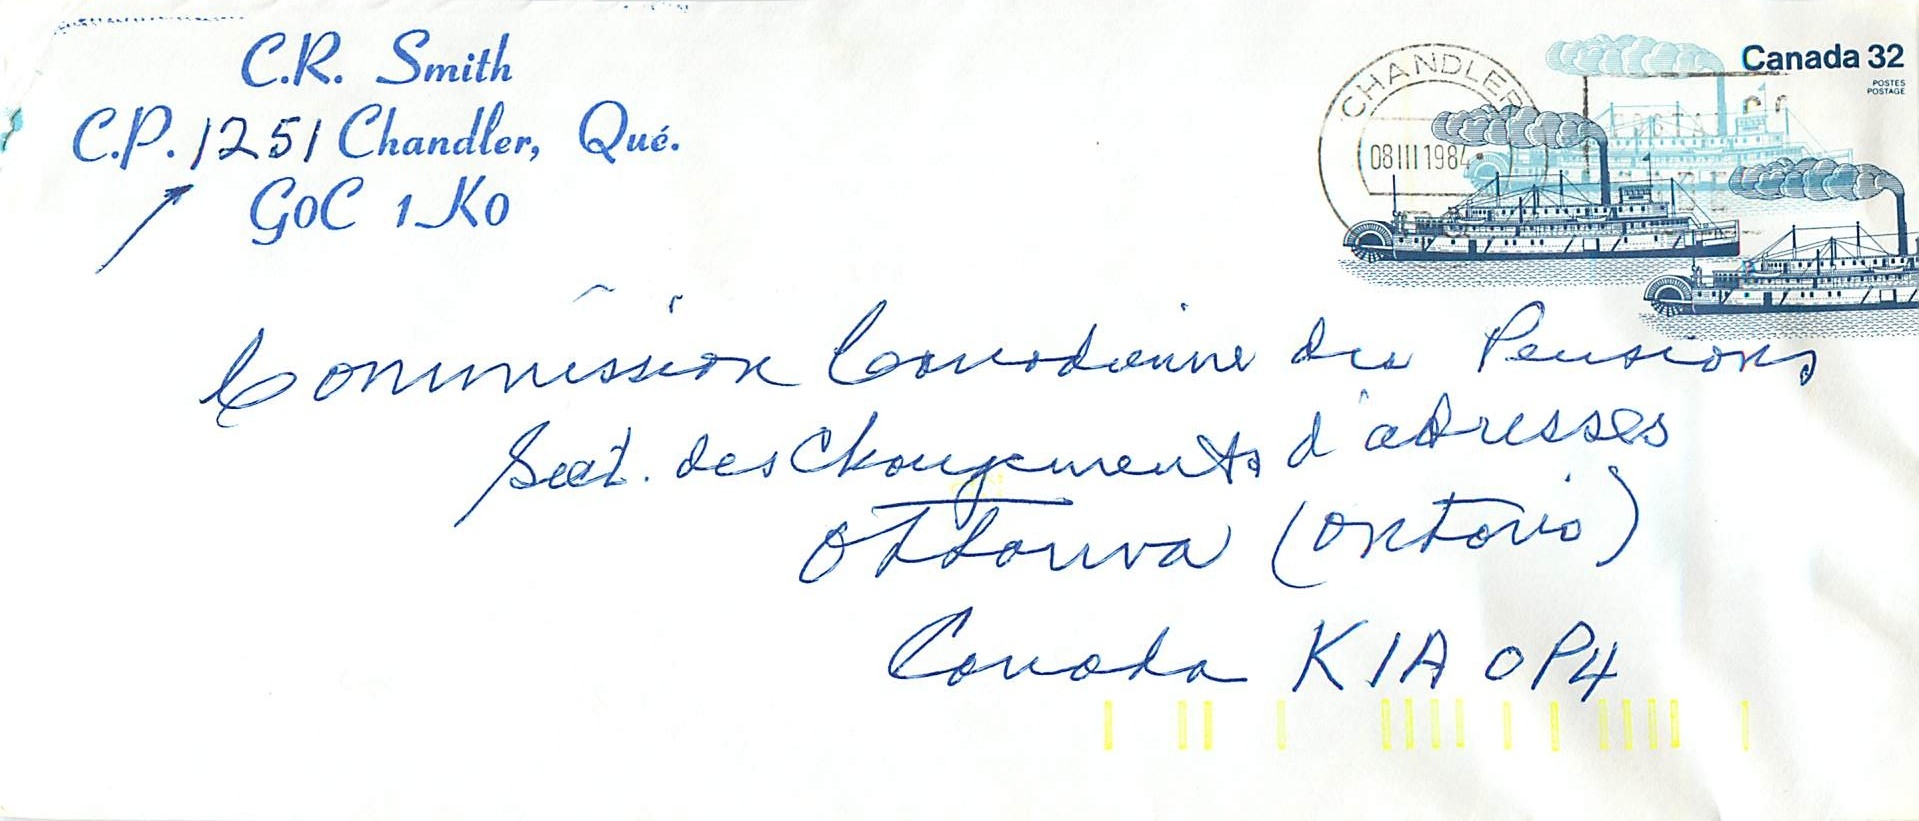 C.R. Smith
C.P. 1251 Chandler, Qué.
G0C 1K0
Canada 32
POSTES
POSTAGE
CHANDLER
08 III 1984
Commission Canadienne des Pensions
Sect. des Changements d'adresses
Ottawa (Ontario)
Canada K1A 0P4